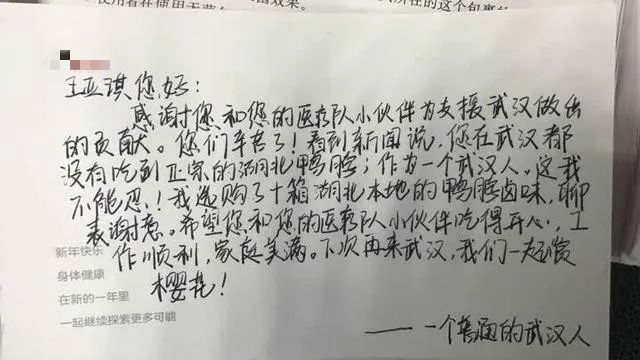 王亚琪您好：
感谢您和您的医疗队小伙伴为支援武汉做出
的贡献。您们辛苦了！看到新闻说，您在武汉都
没有吃到正宗的湖北鸭脖；作为一个武汉人。这我
不能忍！我选购了十箱湖北本地的鸭脖卤味，聊
表谢意。希望您和您的医疗队小伙伴吃得开心，工
作顺利，家庭美满。下次再来武汉，我们一起赏
樱花！
新年快乐
身体健康
在新的一年里
一起继续探索更多可能
——一个普通的武汉人